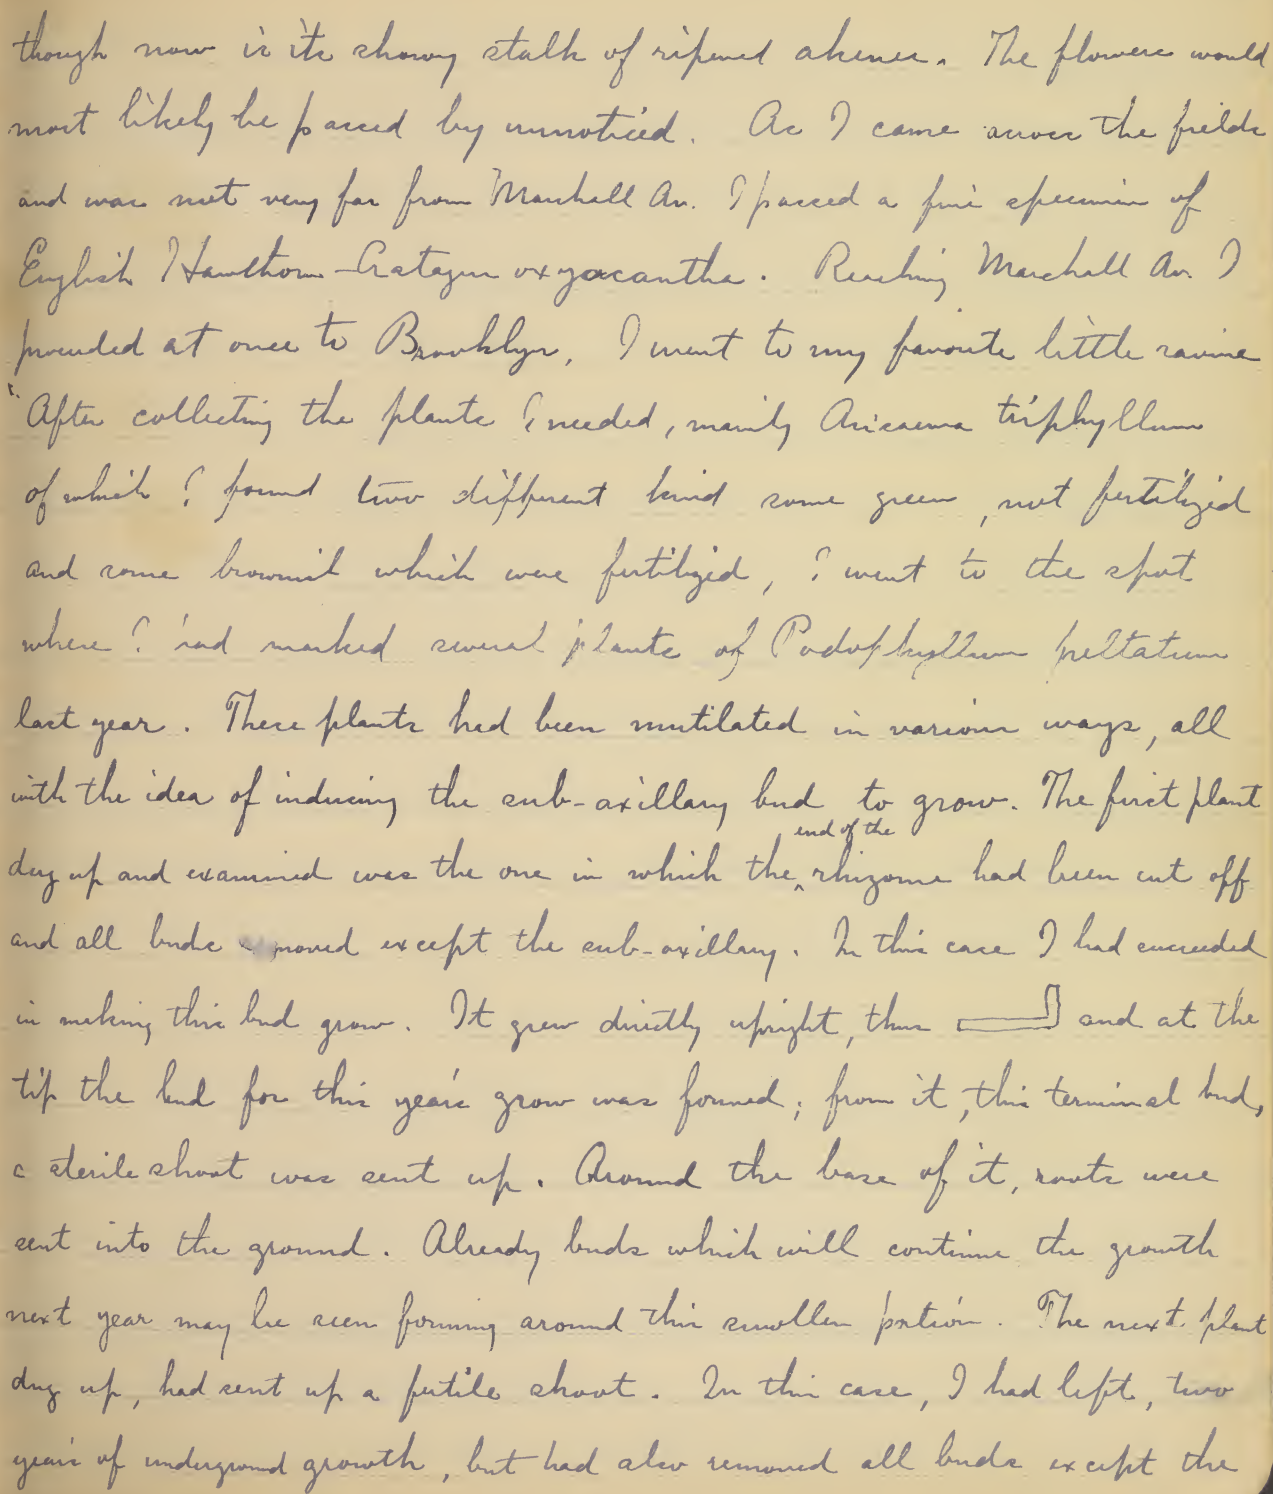 though now is its showy stalk of ripened akenes. The flowers would
most likely be passed by unnoticed. As I came across the fields
and was not very far from Marshall Av. I passed a fine specimen of
English Hawthorn - Cratagus oxyacantha. Reaching Marshall Av. I
proceeded at once to Brooklyn, I went to my favorite little ravine
After collecting the plants I needed, mainly Arisaema triphyllum
of which I found two different kind some green, not fertilized
and some brownish which were fertilized, I went to the spot
where I had marked several plants of Podophyllum peltatum
last year. These plants had been mutilated in various ways, all
with the idea of inducing the sub-axillary bud to grow. The first plant
dug up and examined was the one in which the ^end of the rhizome had been cut off
and all buds removed except the sub-axillary. In this case I had succeeded
in making this bud grow. It grew directly upright, thus and at the
tip the bud for this year's grow was formed; from it, this terminal bud,
a sterile shoot was sent up. Around the base of it, roots were
sent into the ground. Already buds which will continue the growth
next year may be seen forming around this swollen portion. The next plant
dug up, had sent up a fertile shoot. In this case, I had left, two
years of underground growth, but had also removed all buds except the